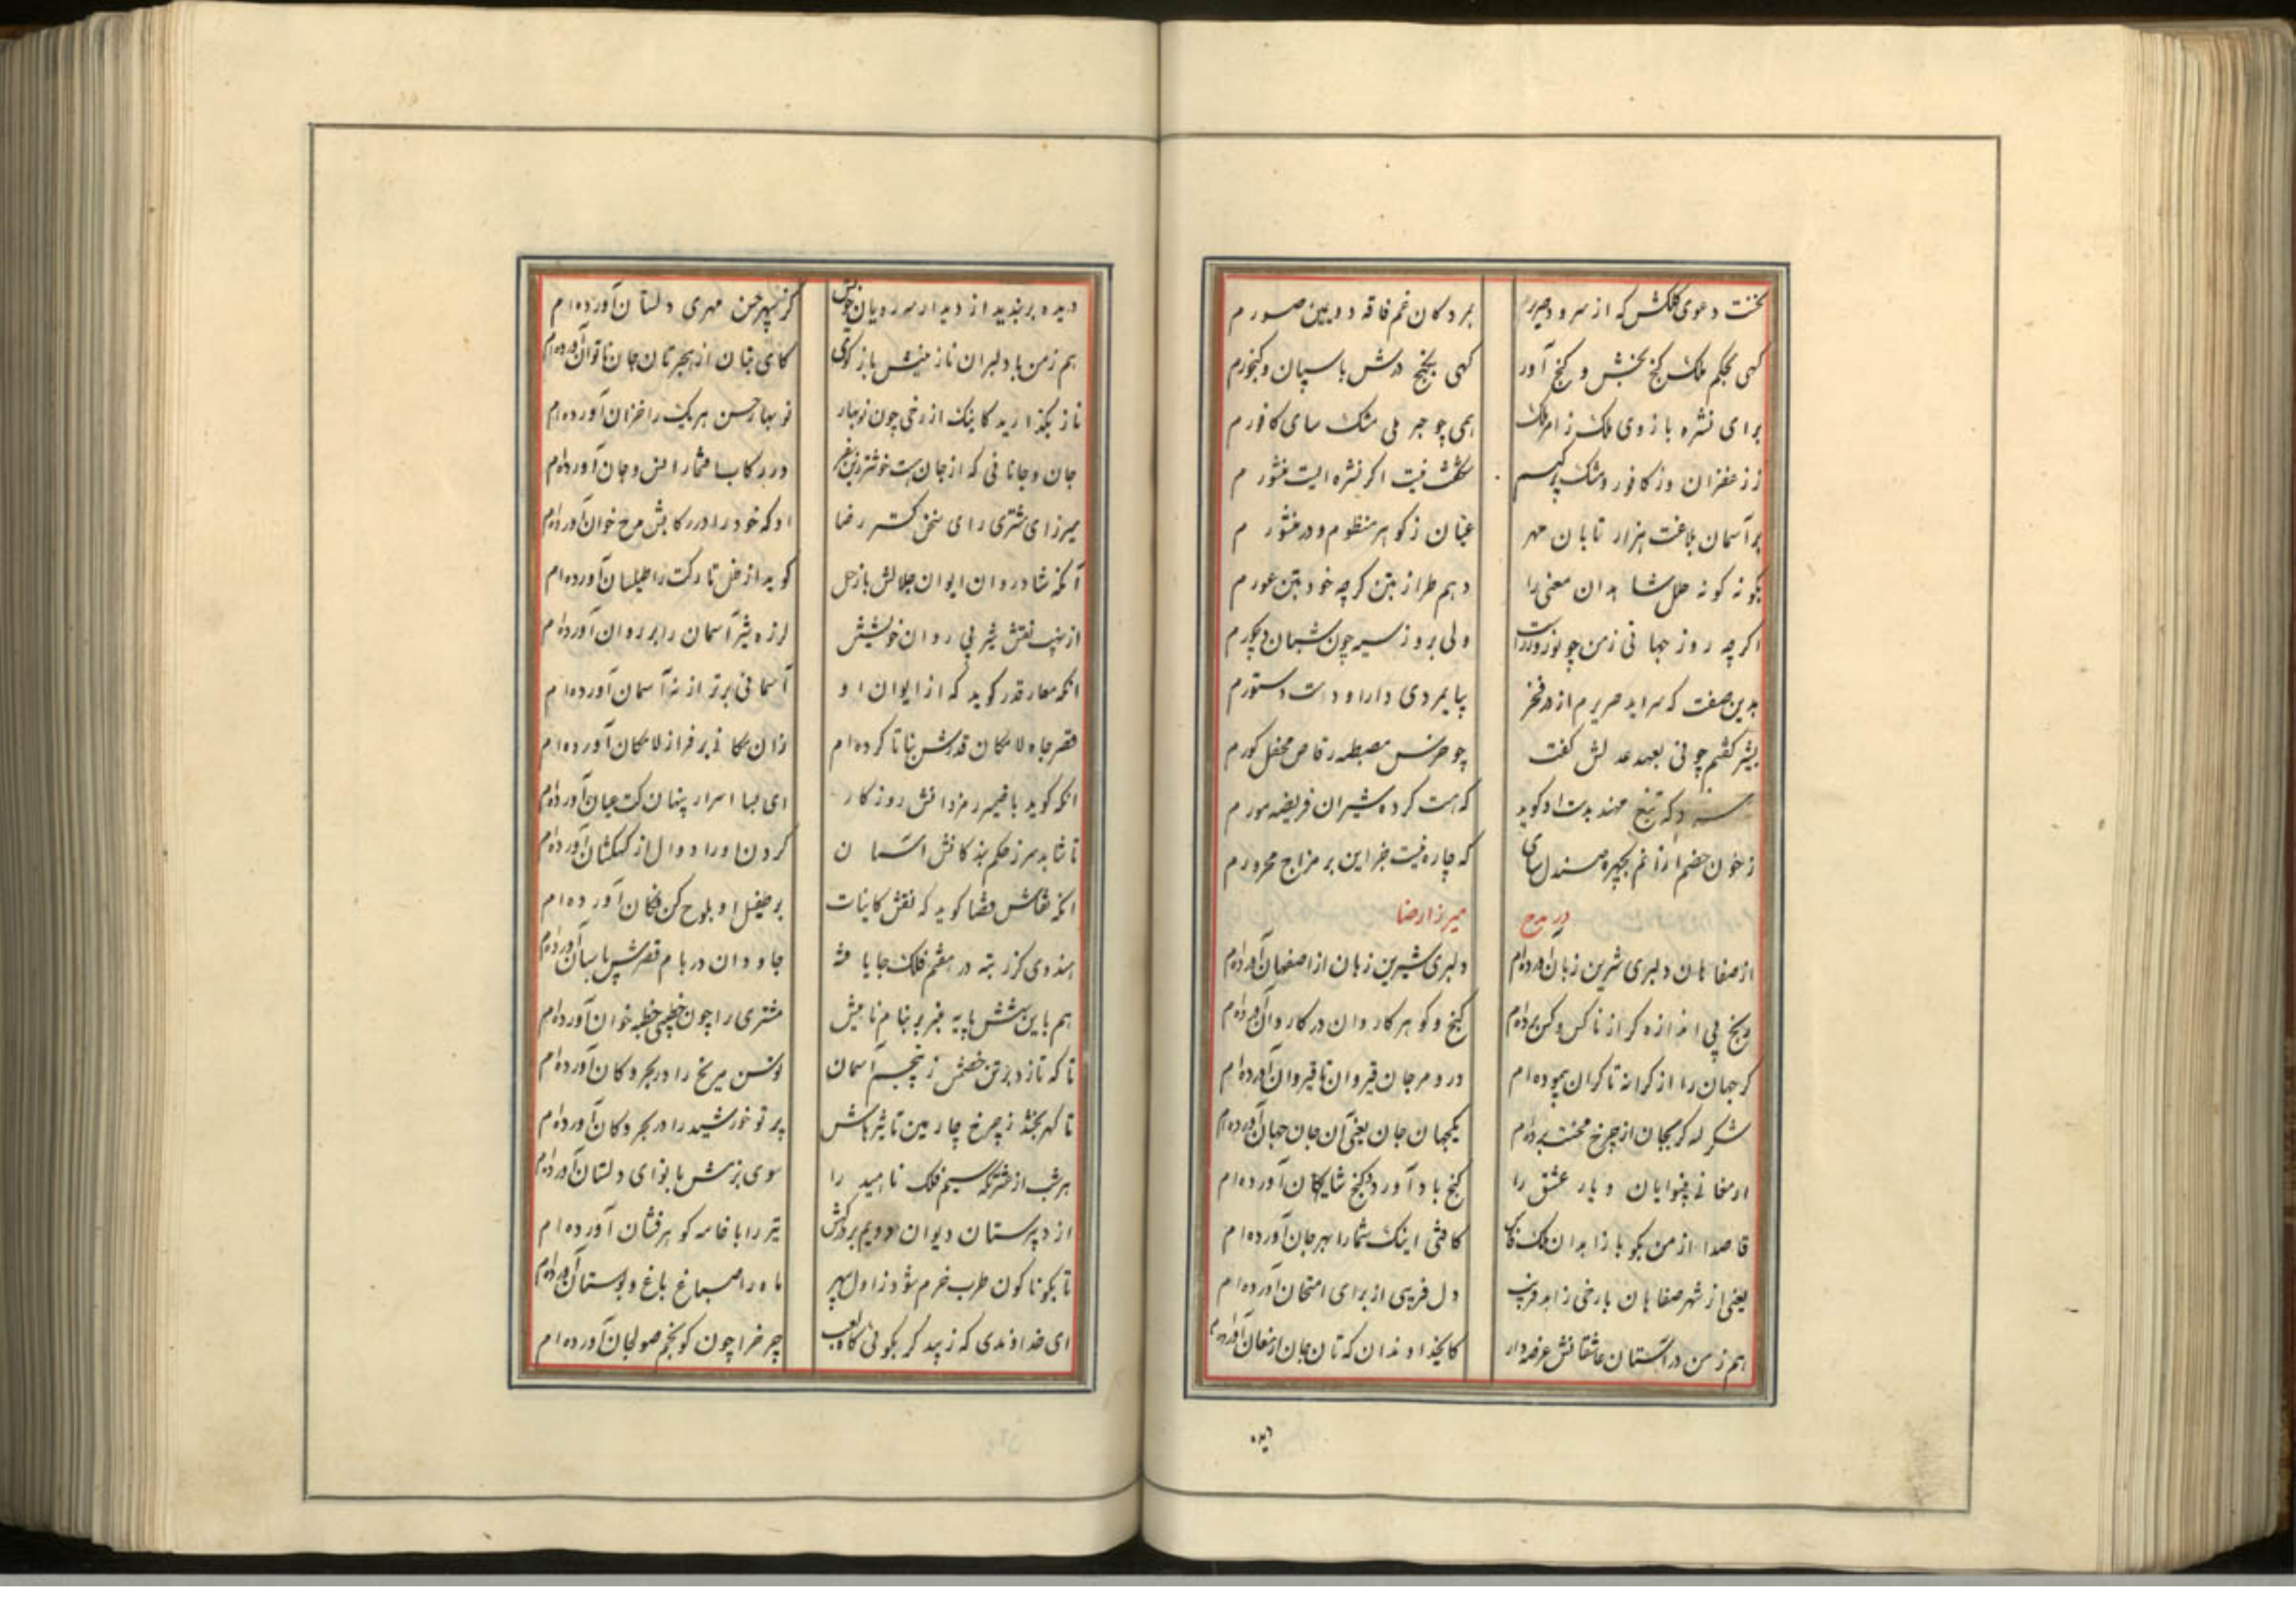 نخست دعوی کلکش که از سرود صریر
بر دکان غم فاقه دوبین صورم
کهی بحکم ملک کنج بخش و کنج آور
کهی بکنج درش پاسپان و کنجورم
برای نشره بازوی ملک ز امر ملک
همی چو جبر ملی مشک سای کافورم
ز زعفران وز کافور و مشک
شکفت نیست اکر نشره ایست منثورم
بر آسمان بلاغت هزار تابان مهر
عیان ز کوهر منظوم و در منثورم
بکونه کونه حلل شاهدان معنی را
دهم طراز بتن کرچه خود بتن عورم
اکرچه روز جهانی ز من چو نوروز است
ولی بروز سیه چون شبان دیجورم
بدین صفت که سراید صریرم از در فخر
بپایمردی دارا و دست دستورم
بشیر کفتم چونی بعهد عدلش کفت
چو خرس مصطبه رقاص محفل کورم
سزد که تیغ مهند بدست او کوید
که هست کرده شیران فریضه سورم
ز خون خصم ارزانم بچهره صندل سای
که چاره نیست جز این بر مزاج محرورم
در مدح
میرزا رضا
از صفاهان دلبری شیرین زبان آورده‌ام
دلبری شیرین زبان از اصفهان آورده‌ام
و کنج بی اندازه کر از ناکس و کس برده‌ام
کنج و کوهر کاروان در کاروان آورده‌ام
کر جهان را از کرانه تا کران پیموده‌ام
در و مرجان قیروان تا قیروان آورده‌ام
شکر لله کر بجان از چرخ محنت برده‌ام
یکجهان جان یعنی آن جان جهان آورده‌ام
ارمغانی بینوایان دیار عشق را
کنج بادآورد و کنج شایکان آورده‌ام
قاصدا از من بکو با زاهدان ملک
کافتی اینک شما را بهر جان آورده‌ام
یعنی از شهر صفاهان با رخی زاهد فریب
دل فریبی از برای امتحان آورده‌ام
هم ز من در آستان عاشقانش عرضه دار
کایخداوندان که تان جان ارمغان آورده‌ام
دیده
دیده بربندید از دیدار مه رویان خویش
کز سپهر حسن مهری دلستان آورده‌ام
هم ز من با دلبران نازنینش باز کوی
کای بتان از هجرتان جان ناتوان آورده‌ام
ناز بکذارید کاینک از رخی چون نوبهار
نوبهار حسن هر یک را خزان آورده‌ام
جان و جانانی که از جان هست خوشتر زین سفر
در رکاب شما را انس و جان آورده‌ام
میرزای مشتری رای سخن کستر رضا
او که خود را در رکابش مدح خوان آورده‌ام
آنکه شادروان ایوان جلالش با زحل
کوید از ظل تارکت را طیلسان آورده‌ام
از نهیب نقش شیر بی روان خویشتش
لرزه شیر آسمان را بر روان آورده‌ام
آنکه معمار قدر کوید که از ایوان او
آسمانی برتر از نه آسمان آورده‌ام
قصر جاه لامکان قدرش بنا تا کرده‌ام
زان مکانی بر فراز لامکان آورده‌ام
آنکه کوید با ضمیر رمز دانش روزکار
ای بسا اسرار پنهان کت عیان آورده‌ام
تا نتابد سر ز حکم بندکانش آسمان
کردن او را دوال از کهکشان آورده‌ام
آنکه نقاش قضا کوید که نقش کاینات
بر طفیل او بلوح کن فکان آورده‌ام
هندوی کز رتبه در هفتم فلک جا یافته
جاودان در بام قصرش پاسبان آورده‌ام
هم باین شش پایه منبر بر بنام نامیش
مشتری را چون خطیبی خطبه خوان آورده‌ام
تا که تازد بر تن خصمش ز پنجم آسمان
توسن مریخ را در بحر و کان آورده‌ام
تا کهر بخشد ز چرخ چارمین تاثیرهاش
پرتو خورشید را در بحر و کان آورده‌ام
هر شب از عشرتکه سیم فلک ناهید را
سوی بزمش با نوای دلستان آورده‌ام
از دبیرستان دیوان دویم بر درکهش
تیر را با خامه کوهرفشان آورده‌ام
تا بکوناکون طرب خرم شود ز اول سپهر
ماه را صباغ باغ و بوستان آورده‌ام
ای خداوندی که زیبد کر بکوئی کاه لعب
چرخ را چون کو بخم صولجان آورده‌ام